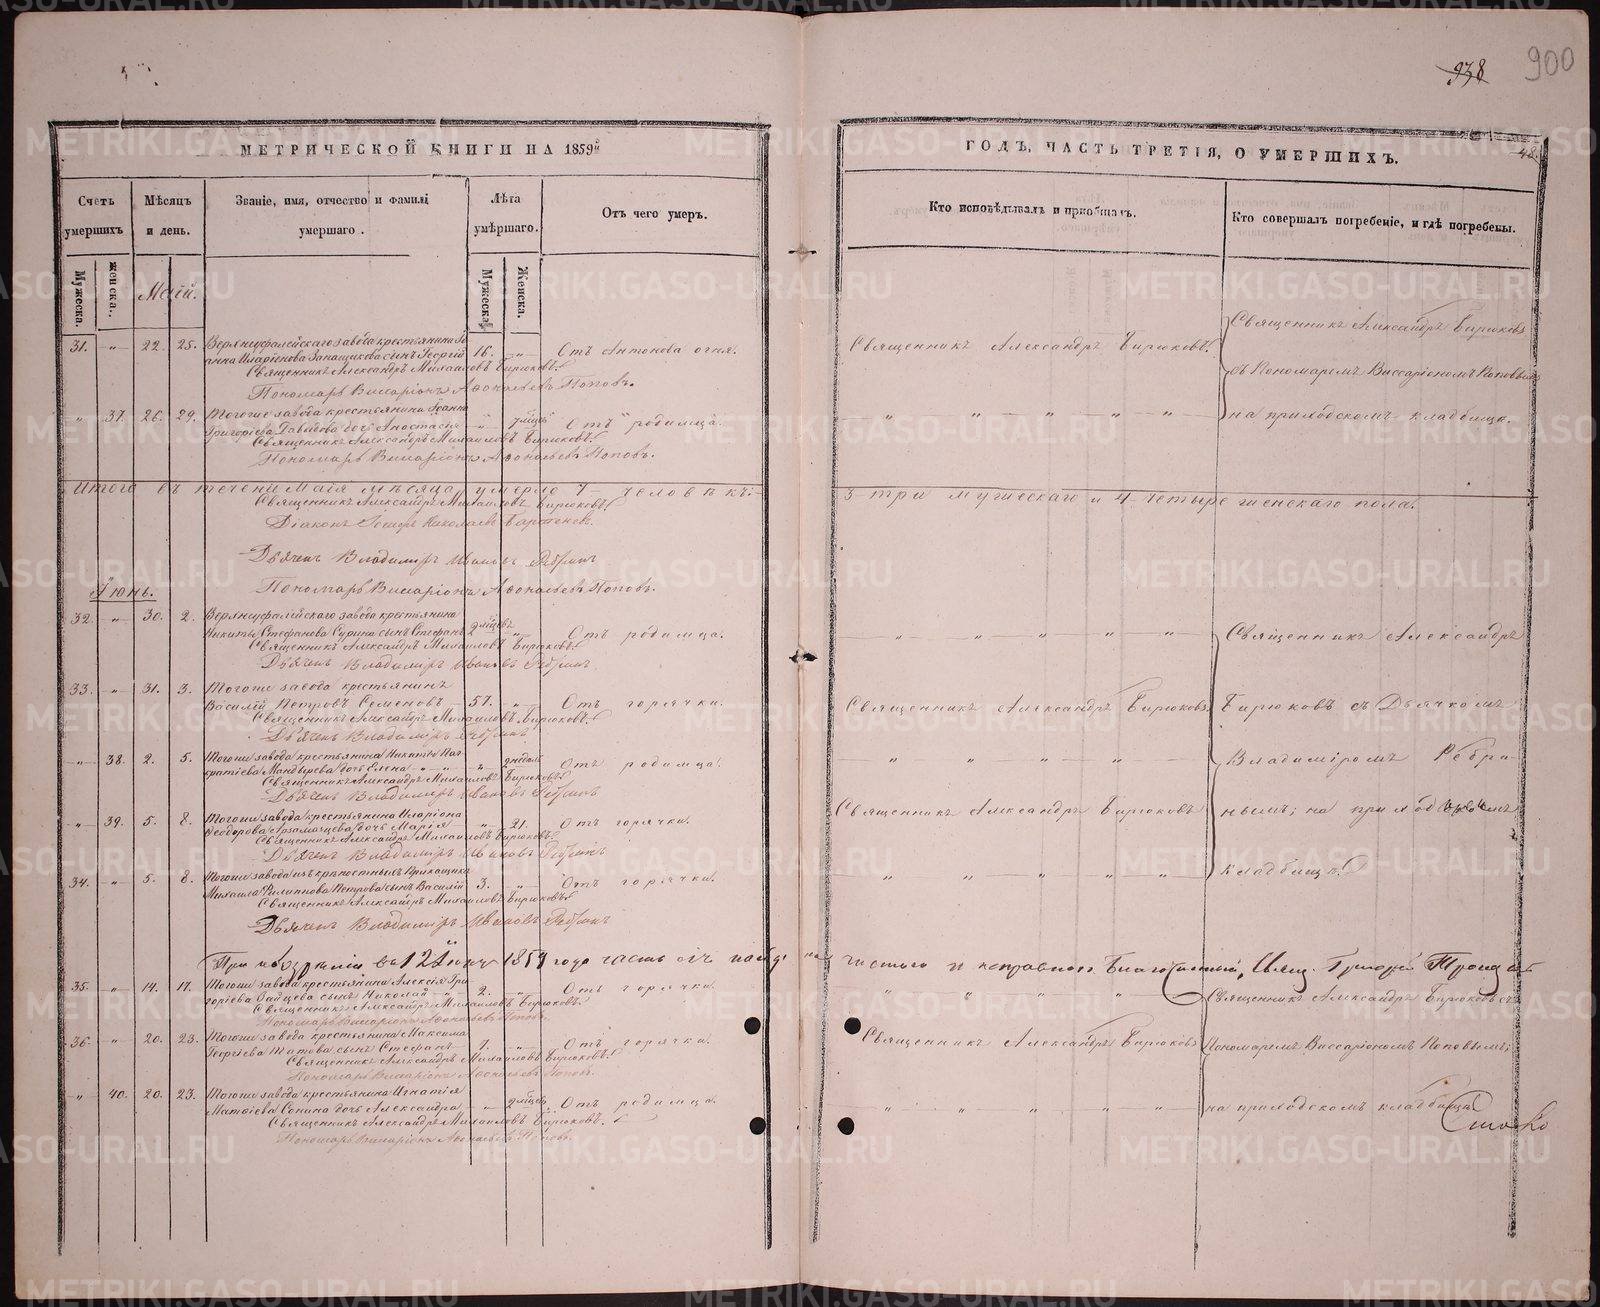 938 900
МЕТРИЧЕСКОЙ КНИГИ НА 1859й
ГОДЪ, ЧАСТЬ ТРЕТІЯ, О УМЕРШИХЪ.
48.
Счетъ умершихъ
Мѣсяцъ и день.
Званіе, имя, отчество и фамилі умершаго.
Лѣта умѣршаго.
Отъ чего умеръ.
Кто исповѣдывалъ и пріобщалъ.
Кто совершалъ погребеніе, и гдѣ погребены.
Мужеска.
женска.
Маій.
Мужеска
Женска.
31. „ 22. 25. Верхнеуфалейскаго завода крестьянина Іо-
анна Иларіонова Запащикова сынъ Георгій 16. „ Отъ Антонова огня.
Священникъ Александръ Бирюковъ.
Священникъ Александръ Бирюковъ
Священникъ Александръ Михаиловъ Бирюковъ.
съ Пономаремъ Виссаріономъ Поповымъ
Пономарь Висаріонъ Афонасьевъ Поповъ.
„ 37. 26. 29. Тогоже завода крестьянина Іоанна
Григорьева Давыдова дочь Анастасія „ 7 мѣцъ Отъ родимца.
„ „ „ „ „
на приходскомъ кладбищѣ.
Священникъ Александръ Михаиловъ Бирюковъ.
Пономарь Висаріонъ Афонасьевъ Поповъ.
Итого въ течени Маія мѣсяца умерло 7 человѣкъ: 3 три мужескаго и 4 четыре женскаго пола.
Священникъ Александръ Михаиловъ Бирюковъ.
Діаконъ Николаевъ
Дьячекъ Владимиръ Ивановъ Ребринъ
Пономарь Висаріонъ Афонасьевъ Поповъ.
Іюнь.
32. „ 30. 2. Верхнеуфалейскаго завода крестьянина
Никиты Стефанова Сурина сынъ Стефанъ 2 мѣцъ „ Отъ родимца.
„ „ „ „ „
Священникъ Александръ
Священникъ Александръ Михаиловъ Бирюковъ.
Дьячекъ Владимиръ Ивановъ Ребринъ
33. „ 31. 3. Тогоже завода крестьянинъ
Василій Петровъ Семеновъ 57. „ Отъ горячки.
Священникъ Александръ Бирюковъ.
Бирюковъ съ Дьячкомъ
Священникъ Александръ Михаиловъ Бирюковъ.
Дьячекъ Владимиръ Ребринъ
„ 38. 2. 5. Тогоже завода крестьянина Никиты Пан-
кратіева Мандырева дочь Елена „ 2 недѣл. Отъ родимца.
„ „ „ „ „
Владиміромъ Ребри-
Священникъ Александръ Михаиловъ Бирюковъ.
Дьячекъ Владимиръ Ивановъ Ребринъ
„ 39. 5. 8. Тогоже завода крестьянина Иларіона
Феодорова Арзамасцева дочь Марія „ 21. Отъ горячки.
Священникъ Александръ Бирюковъ
нымъ; на приходскомъ
Священникъ Александръ Михаиловъ Бирюковъ.
Дьячекъ Владимиръ Ивановъ Ребринъ
34. „ 5. 8. Тогоже завода изъ крѣпостныхъ Прикащика
Михаила Филиппова Петрова сынъ Василій 3. „ Отъ горячки.
„ „ „ „ „
кладбищѣ.
Священникъ Александръ Михаиловъ Бирюковъ.
Дьячекъ Владимиръ Ивановъ Ребринъ
При обозрѣніи въ 12й іюня 1859 года часть сія чистою и исправною Благочинный, Свящ. Григорій
35. „ 14. 17. Тогоже завода крестьянина Алексія Гри-
горіева Зайцева сынъ Николай 2. „ Отъ горячки.
„ „ „ „
Священникъ Александръ Бирюковъ съ
Священникъ Александръ Михаиловъ Бирюковъ.
Пономарь Висаріонъ Афонасьевъ Поповъ.
36. „ 20. 23. Тогоже завода крестьянина Максима
Георгіева Титова сынъ Стефанъ 1. „ Отъ горячки.
Священникъ Александръ Бирюковъ
Пономаремъ Виссаріономъ Поповымъ;
Священникъ Александръ Михаиловъ Бирюковъ.
Пономарь Висаріонъ Афонасьевъ Поповъ.
„ 40. 20. 23. Тогоже завода крестьянина Игнатія
Матвіева Сонина дочь Александра „ 2 мѣцъ. Отъ родимца.
„ „ „ „ „
на приходскомъ кладбищѣ
Священникъ Александръ Михаиловъ Бирюковъ.
Пономарь Висаріонъ Афонасьевъ Поповъ.
METRIKI.GASO-URAL.RU